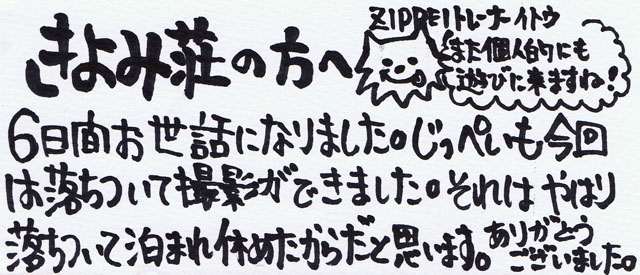 きよみ荘の方へ
ZIPPEIトレーナーイトウ
また個人的にも
遊びに来ますね!
6日間お世話になりました。じっぺいも今回
は落ちついて撮影ができました。それはやはり
落ちついて泊まれ休めたからだと思います。ありがとう
ございました。